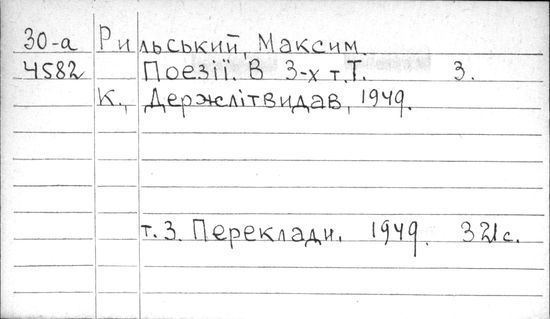 30-а Рильський, Максим.
4582 Поезії. В 3-х т. Т. 3.
К., Держлітвидав, 1949.
т. 3. Переклади. 1949. 321 с.